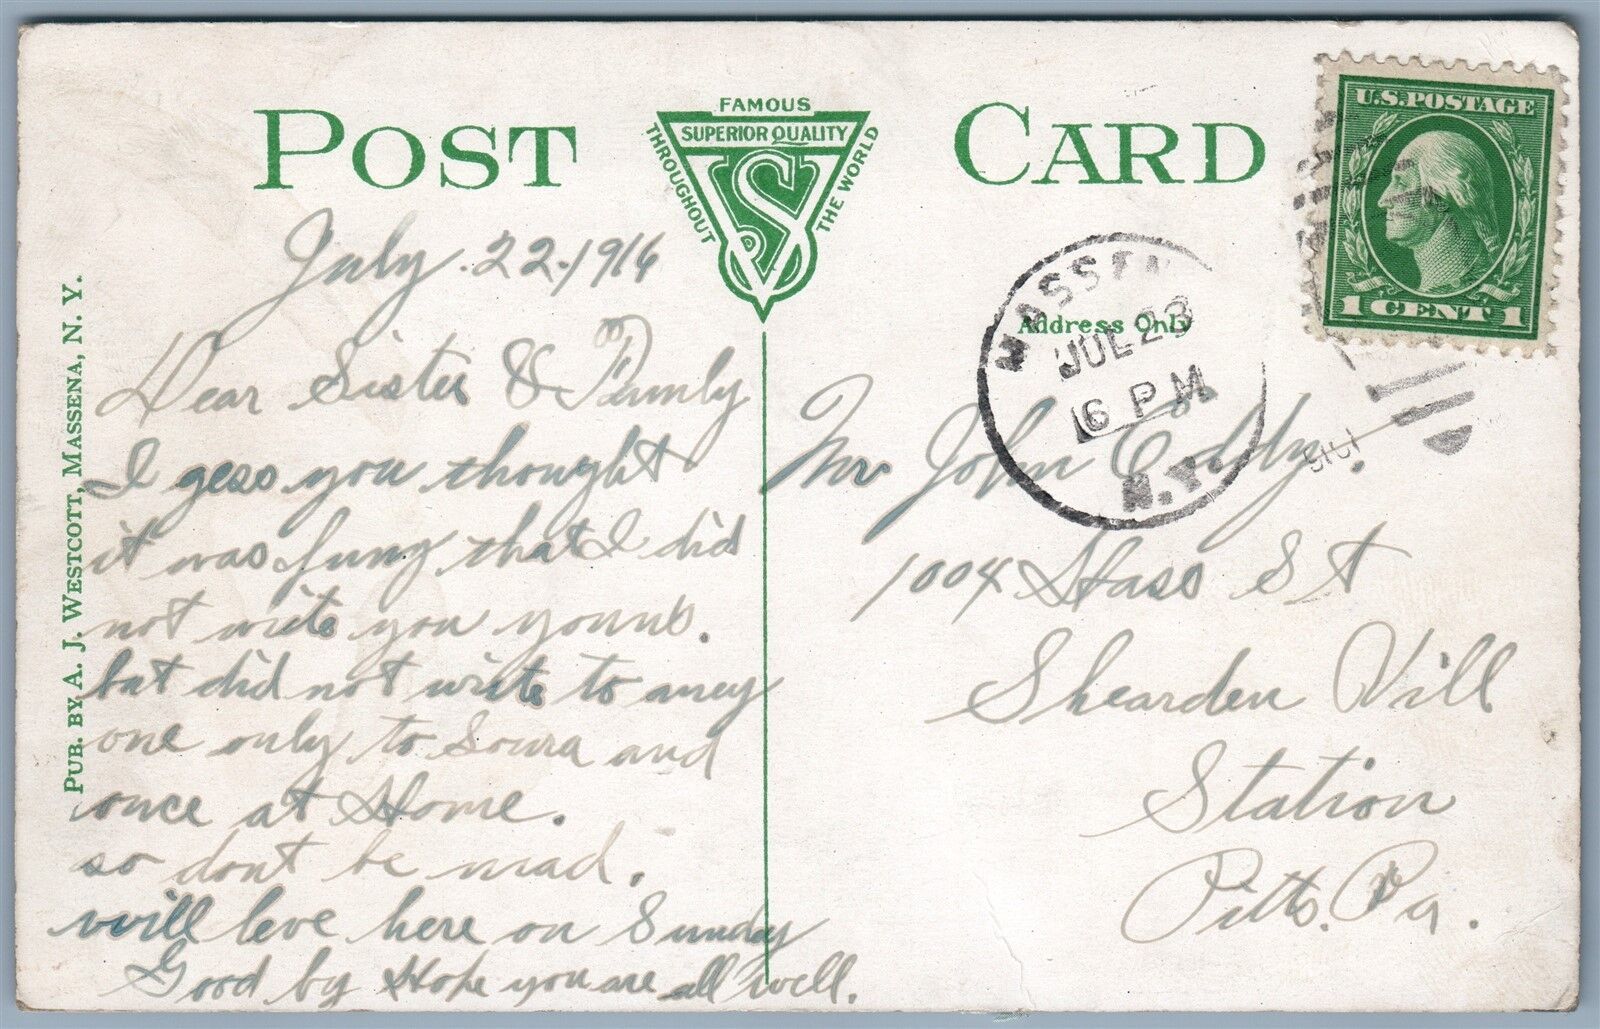 POST CARD
FAMOUS
SUPERIOR QUALITY
THROUGHOUT
THE WORLD
S
U.S. POSTAGE
1 CENT 1
MASSENA
JUL 23
6 PM
N.Y.
Address Only
PUB. BY A. J. WESTCOTT, MASSENA, N. Y.
July. 22. 1916
Dear Sister & Family
I gess you thought
it was funy that I did
not write you
but did not write to aney
one only to and
once at Home.
so dont be mad.
will leve here on Sunday
Good by Hope you are all well.
Mr John Eddy.
1004 St
Shearden Vill
Station
Pitts. Pa.